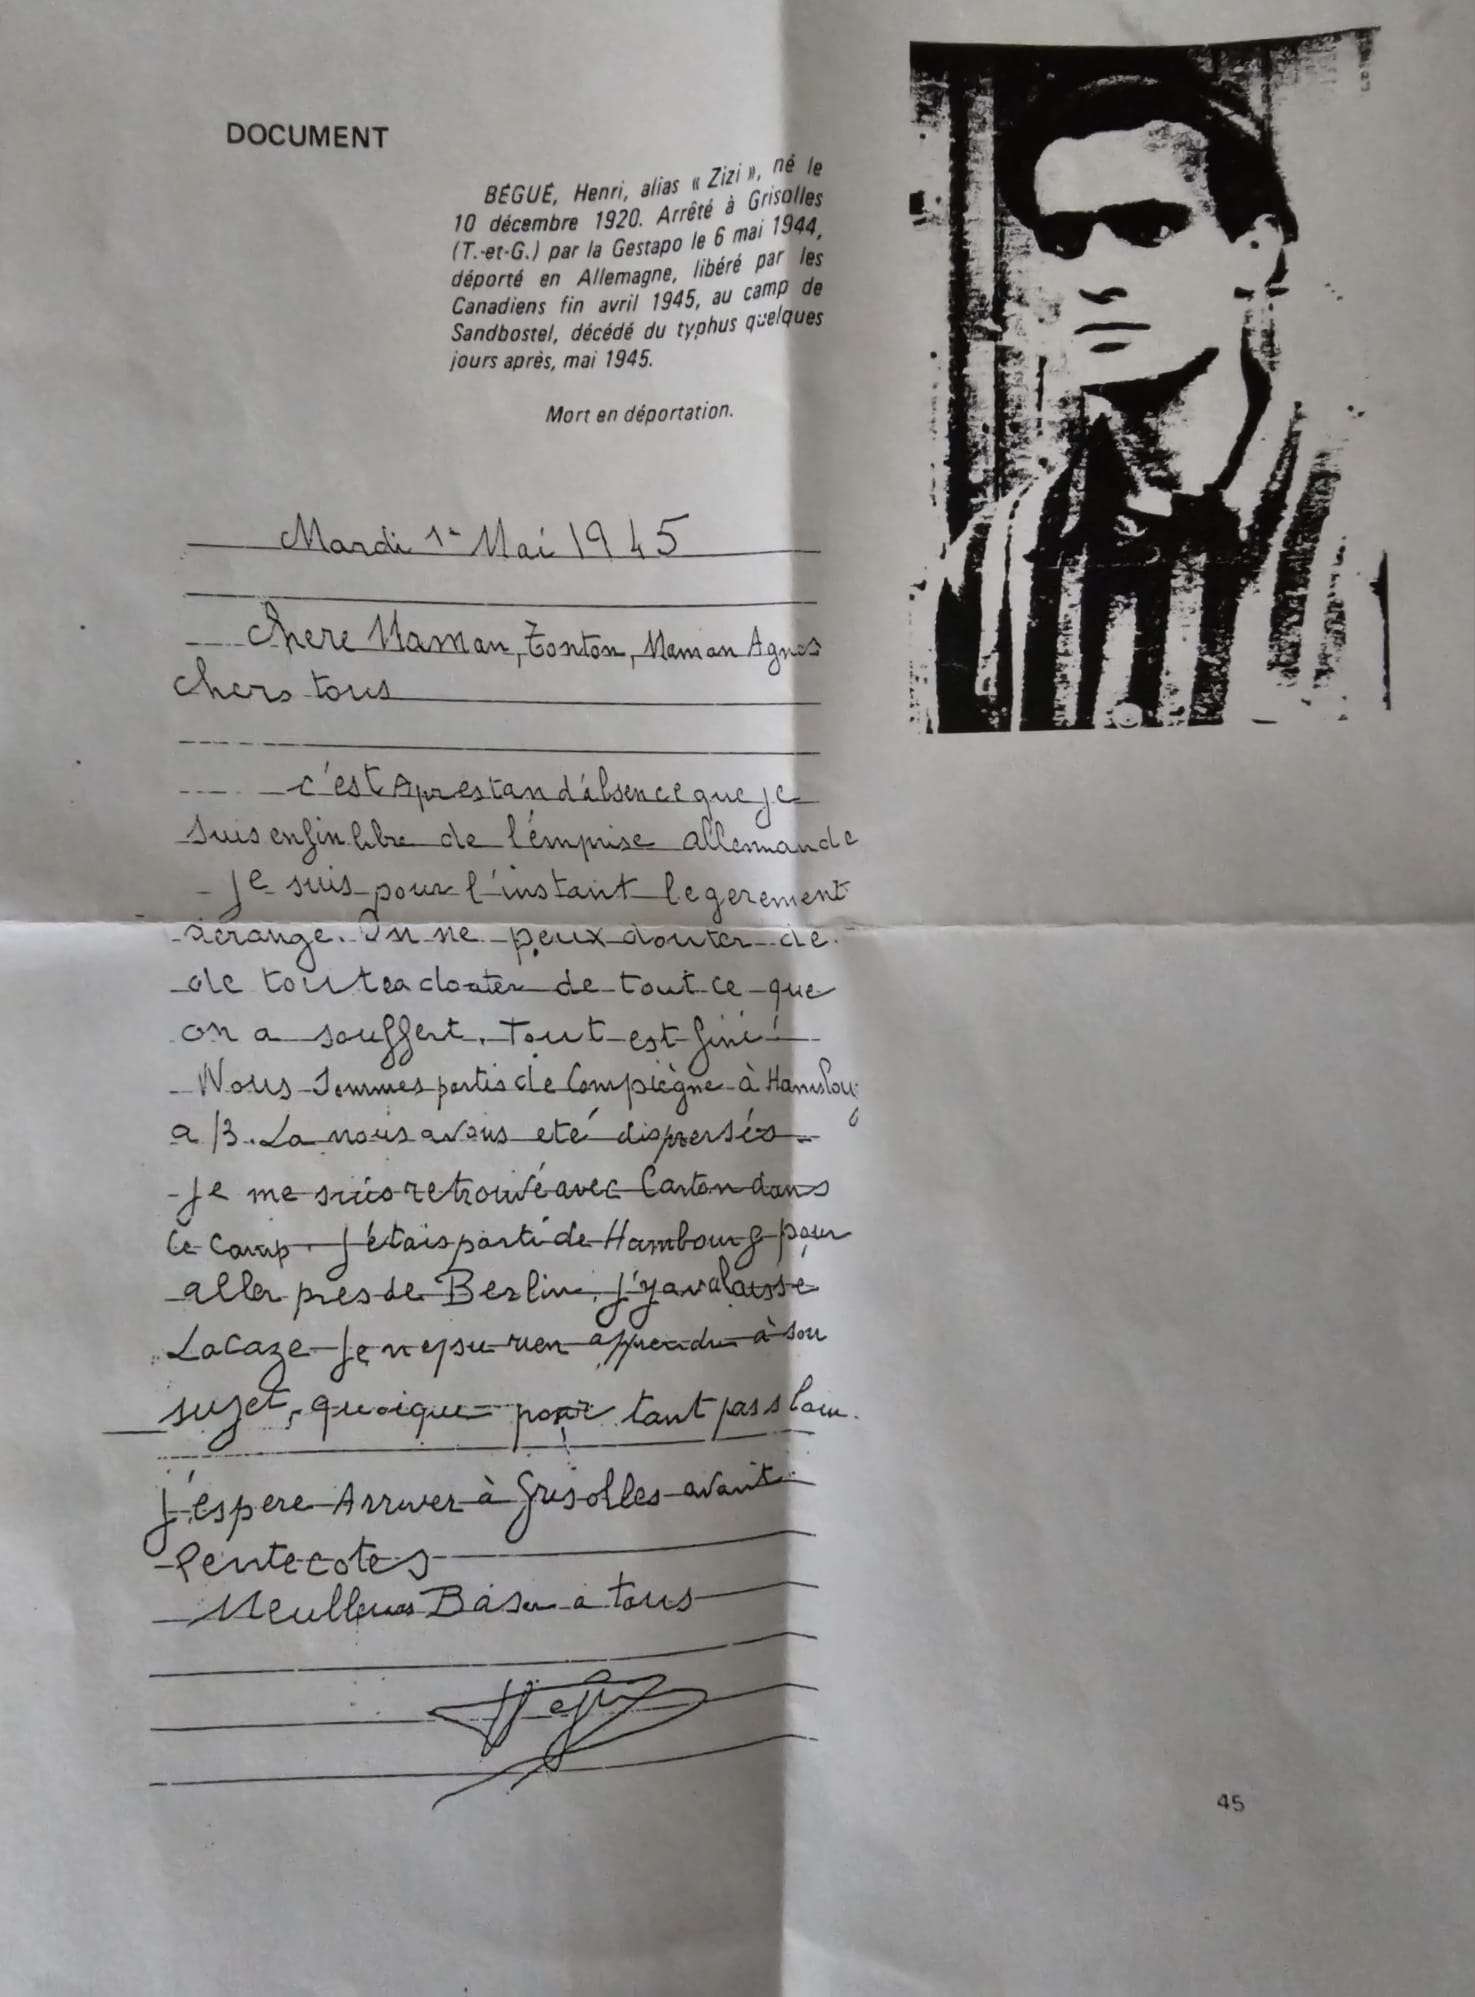 DOCUMENT
BÉGUÉ, Henri, alias « Zizi », né le
10 décembre 1920. Arrêté à Grisolles
(T.-et-G.) par la Gestapo le 6 mai 1944,
déporté en Allemagne, libéré par les
Canadiens fin avril 1945, au camp de
Sandbostel, décédé du typhus quelques
jours après, mai 1945.
Mort en déportation.
Mardi 1er Mai 1945
chere Maman, Tonton, Maman Agnes
chers tous
c'est Apres tan d'absence que je
suis enfin libre de l'emprise allemande
Je suis pour l'instant legerement
derange. On ne peux douter de
de tout ce que
on a souffert. Tout est fini!
Nous sommes partis de Compiègne à Hambourg
a 13. La nous avons eté dispersés
Je me suis retrouvé avec Carton dans
ce camp. J'étais parti de Hambourg pour
aller pres de Berlin. J'y avalaissé
Lacaze Je n'epsu rien apprendre à son
sujet, quoique pour tant pas loin.
J'espere Arriver à Grisolles avant
Pentecotes
Meilleurs Baser a tous